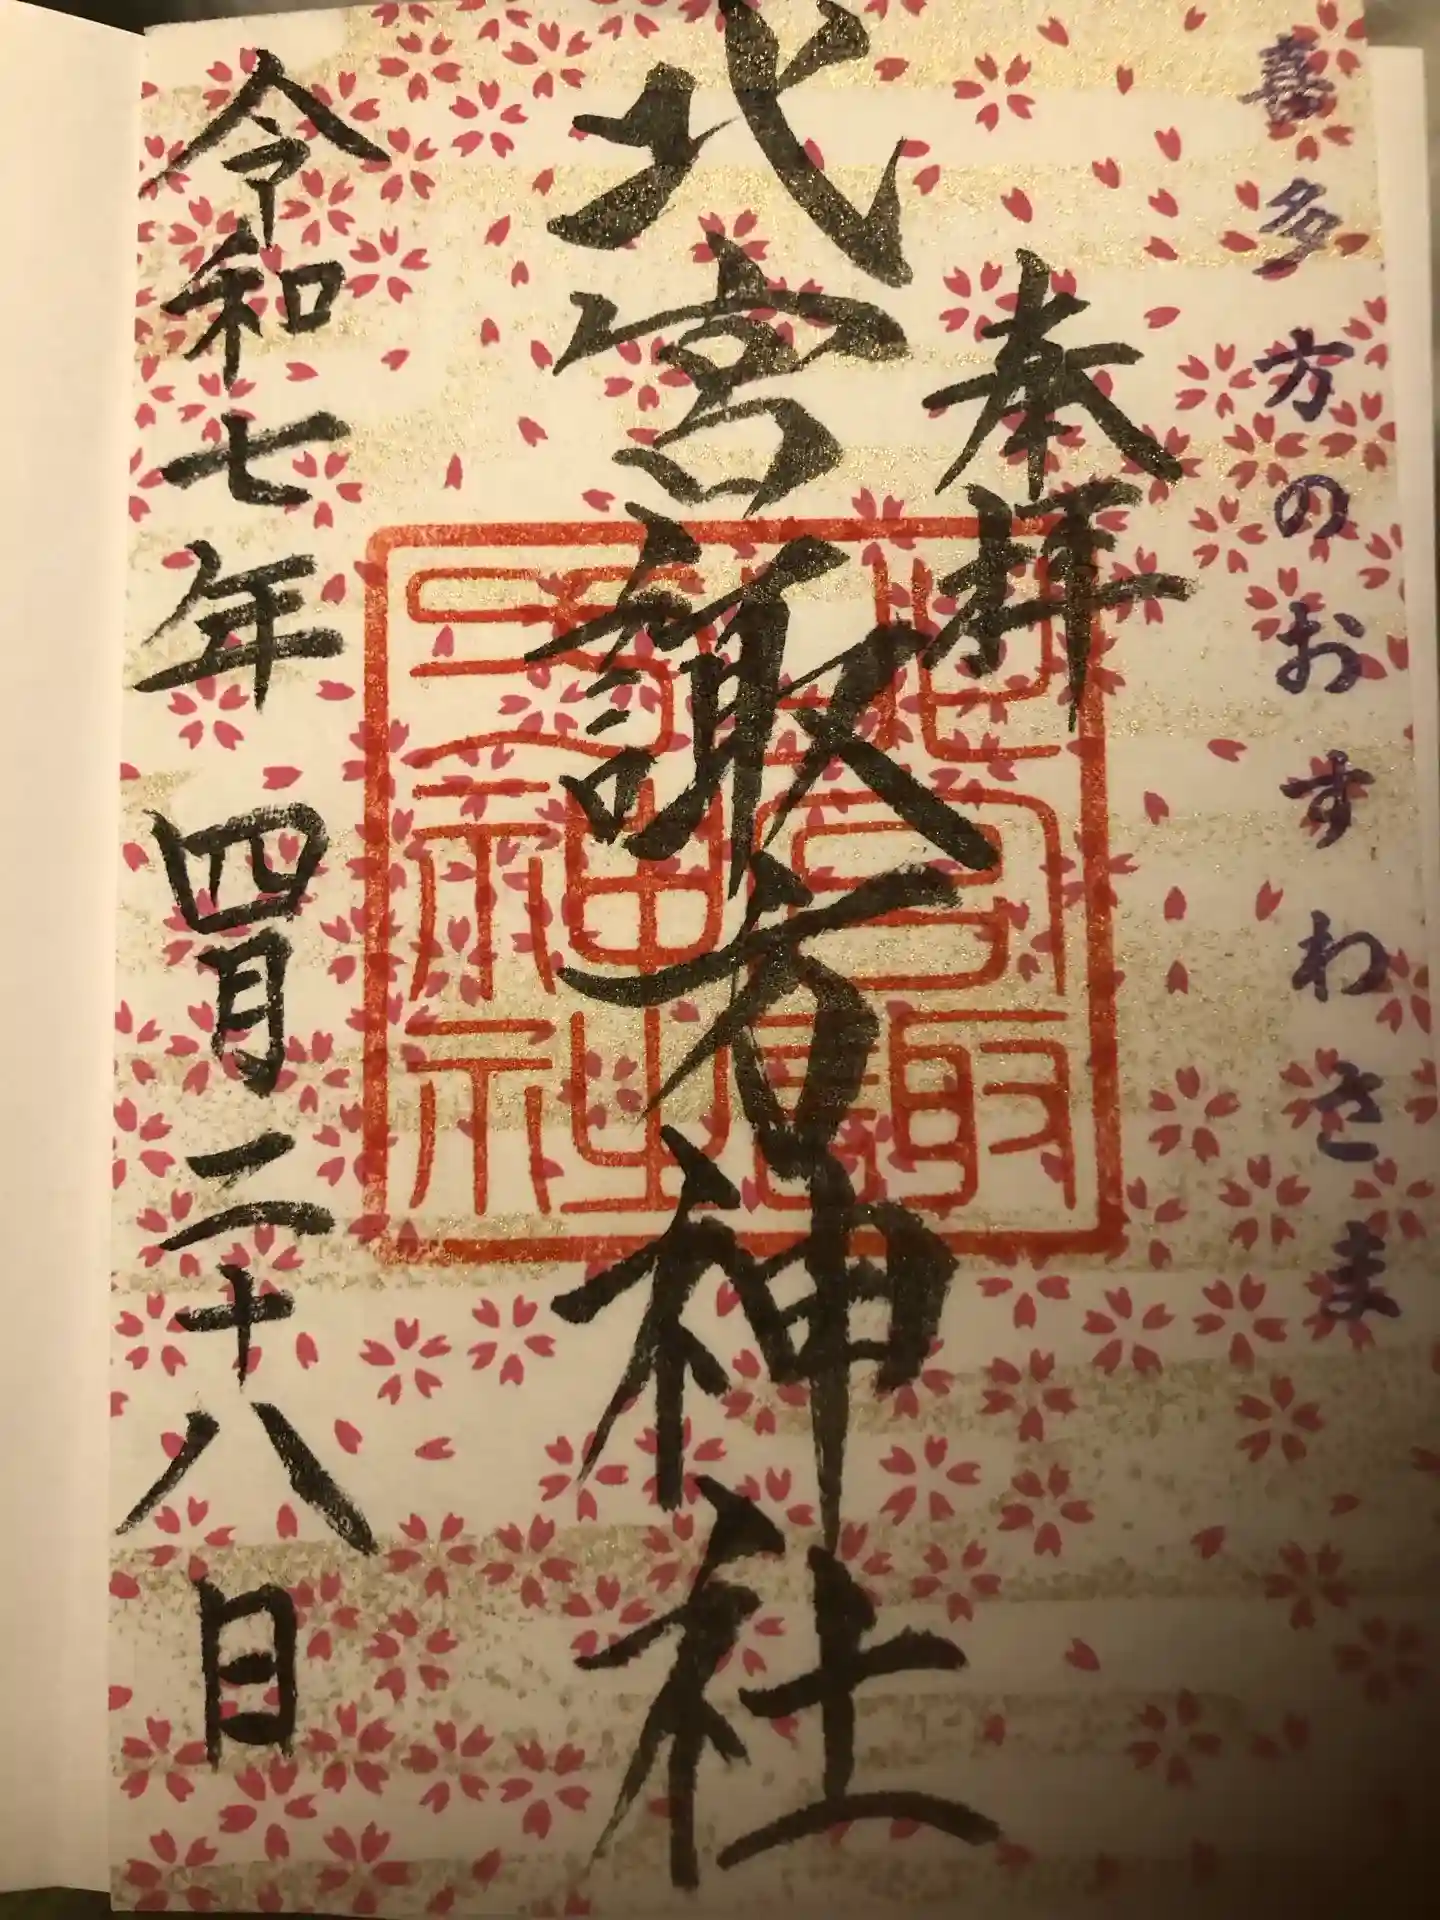 喜多方のおすわさま
奉拝
北宮諏方神社
北宮諏
方神社
令和七年四月二十八日